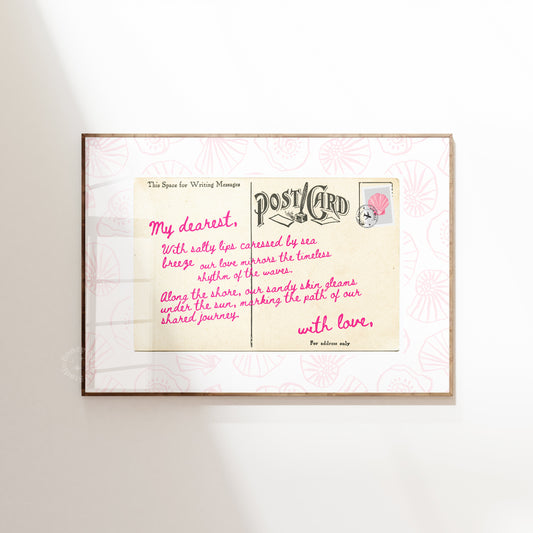 This Space for Writing Messages
POST CARD
My dearest,
With salty lips caressed by sea
breeze our love mirrors the timeless
rhythm of the waves.
Along the shore, our sandy skin gleams
under the sun, marking the path of our
shared journey
with love,
For address only